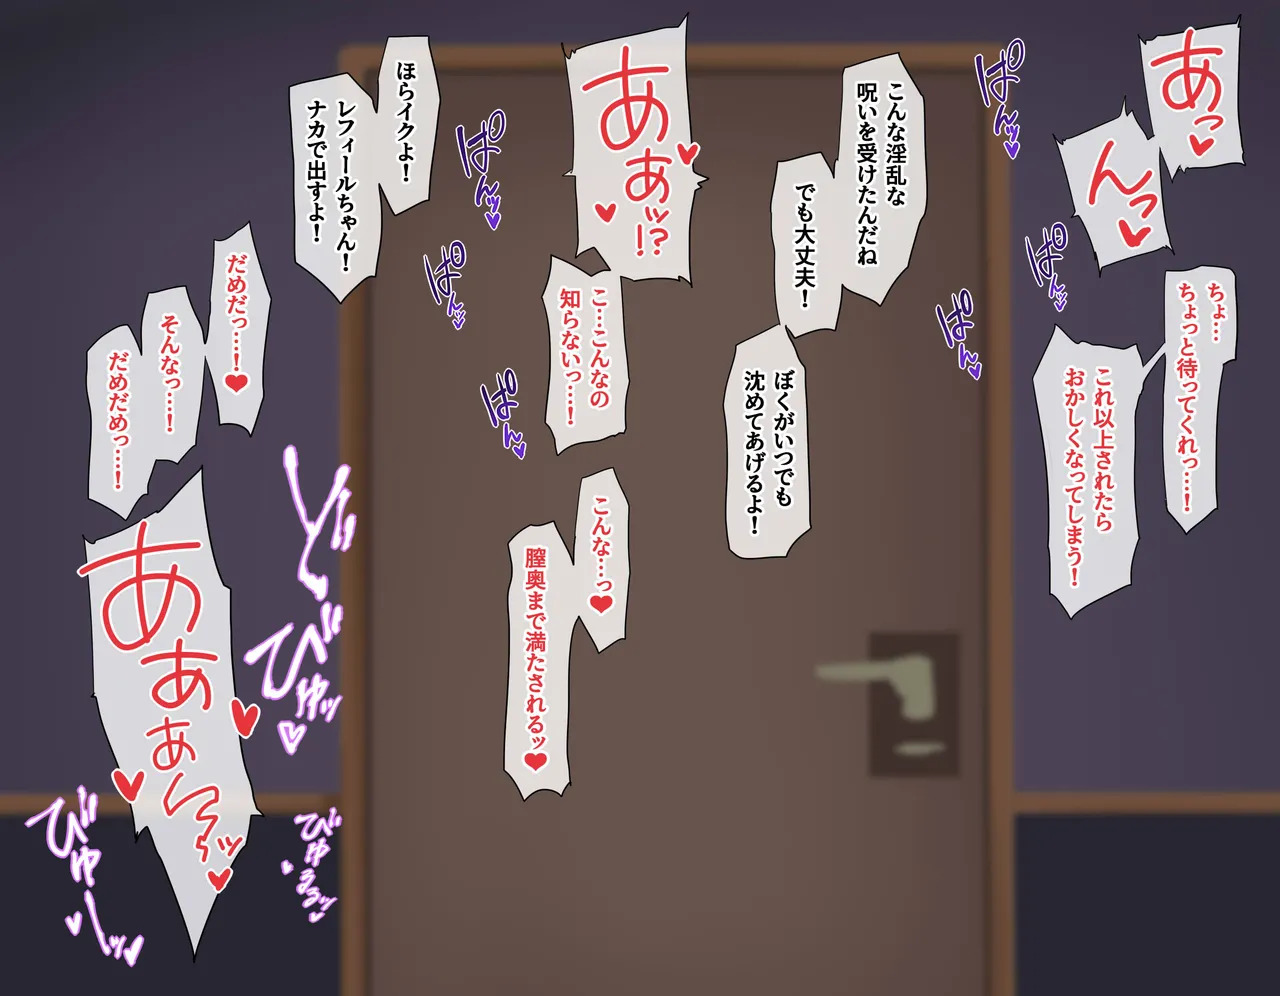 あっ♥
んっ♥
ちょ…
ちょっと待ってくれっ…！
これ以上されたら
おかしくなってしまう！
ぱんッ♥
ぱんッ♥
ぱんッ♥
こんな淫乱な
呪いを受けたんだね
でも大丈夫！
ぼくがいつでも
沈めてあげるよ！
あぁッ!?♥♥
こ…こんなの
知らないっ…！
こんな…っ♥
膣奥まで満たされるッ♥
ぱんッ♥
ぱんッ♥
ぱんッ♥
ほらイクよ！
レフィールちゃん！
ナカで出すよ！
だめだっ…！♥
そんなっ…！
だめだめっ…！
ああぁあん〜ッ♥♥♥
どッ
びゅッ♥
びゅるッ♥
びゅーッ♥